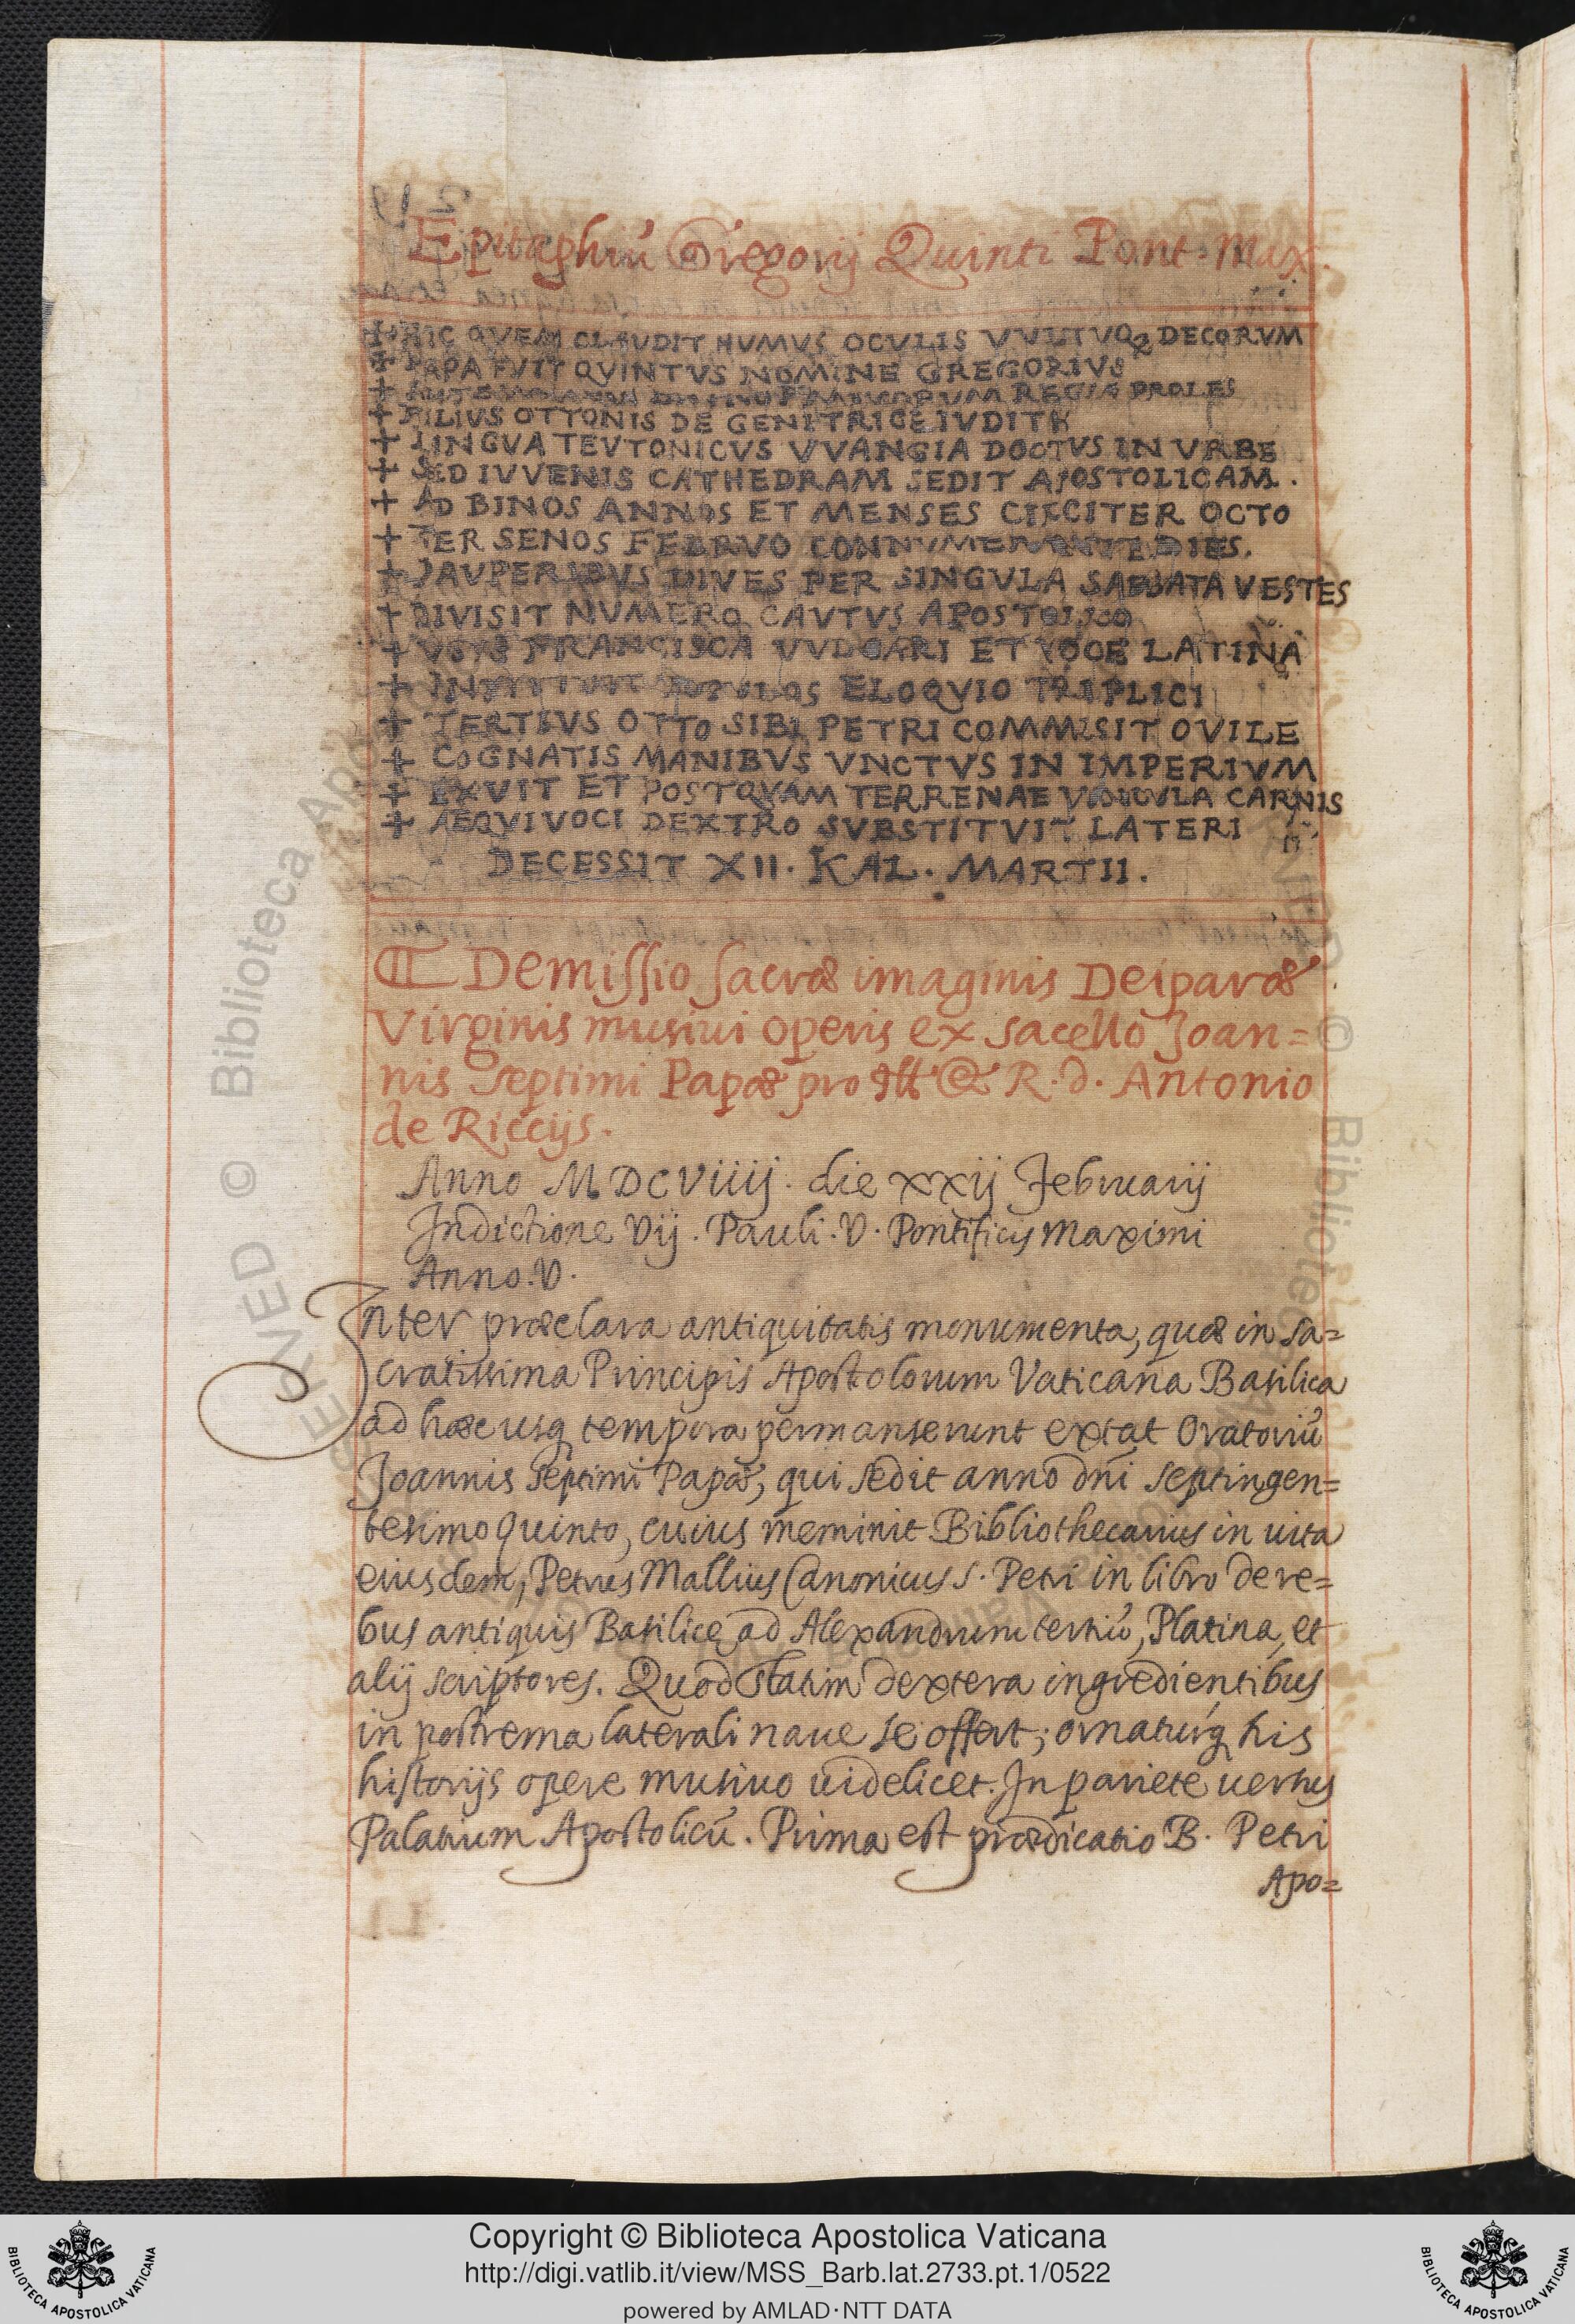 Epitaphiũ Gregorij Quinti Pont. Max.
+ HIC QVEM CLAVDIT HVMVS OCVLIS VVLTVQ₂ DECORVM
+ PAPA FVIT QVINTVS NOMINE GREGORIVS
+ REGIA PROLES
+ FILIVS OTTONIS DE GENITRICE IVDITH
+ LINGVA TEVTONICVS VVANGIA DOCTVS IN VRBE
+ SED IVVENIS CATHEDRAM SEDIT APOSTOLICAM.
+ AD BINOS ANNOS ET MENSES CIRCITER OCTO
+ TER SENOS FEBRVO CONNVMERANTE DIES.
+ PAVPERIBVS DIVES PER SINGVLA SABBATA VESTES
+ DIVISIT NVMERO CAVTVS APOSTOLICO
+ VSVS FRANCISCA VVLGARI ET VOCE LATINA
+ INSTITVIT POPVLOS ELOQVIO TRIPLICI
+ TERTIVS OTTO SIBI PETRI COMMISIT OVILE
+ COGNATIS MANIBVS VNCTVS IN IMPERIVM
+ EXVIT ET POSTQVAM TERRENAE VINCVLA CARNIS
+ AEQVIVOCI DEXTRO SVBSTITVIT LATERI
DECESSIT XII. KAL. MARTII.
Demissio sacræ imaginis Deiparæ
Virginis musiui operis ex sacello Joan=
nis septimi Papæ pro Ill. & R. d. Antonio
de Riccijs.
Anno MDCViiij. die xxij Februarij
Indictione Vij. Pauli. V. Pontificis Maximi
Anno. V.
Inter præclara antiquitatis monumenta, quæ in sa=
cratissima Principis Apostolorum Vaticana Basilica
ad hæc usq tempora permanserunt extat Oratoriũ
Joannis septimi Papæ, qui sedit anno dñi septingen=
tesimo quinto, cuius meminit Bibliothecarius in uita
eiusdem, Petrus Mallius Canonicus S. Petri in libro de re=
bus antiquis Basilice ad Alexandrum tertiũ, Platina, et
alij scriptores. Quod statim dextera ingredientibus
in postrema laterali naue se offert; ornaturq his
historijs opere musiuo uidelicet. In pariete uersus
Palatium Apostolicũ. Prima est prædicatio B. Petri
Apo=
Copyright © Biblioteca Apostolica Vaticana
http://digi.vatlib.it/view/MSS_Barb.lat.2733.pt.1/0522
powered by AMLAD·NTT DATA
BIBLIOTECA APOSTOLICA VATICANA
BIBLIOTECA APOSTOLICA VATICANA